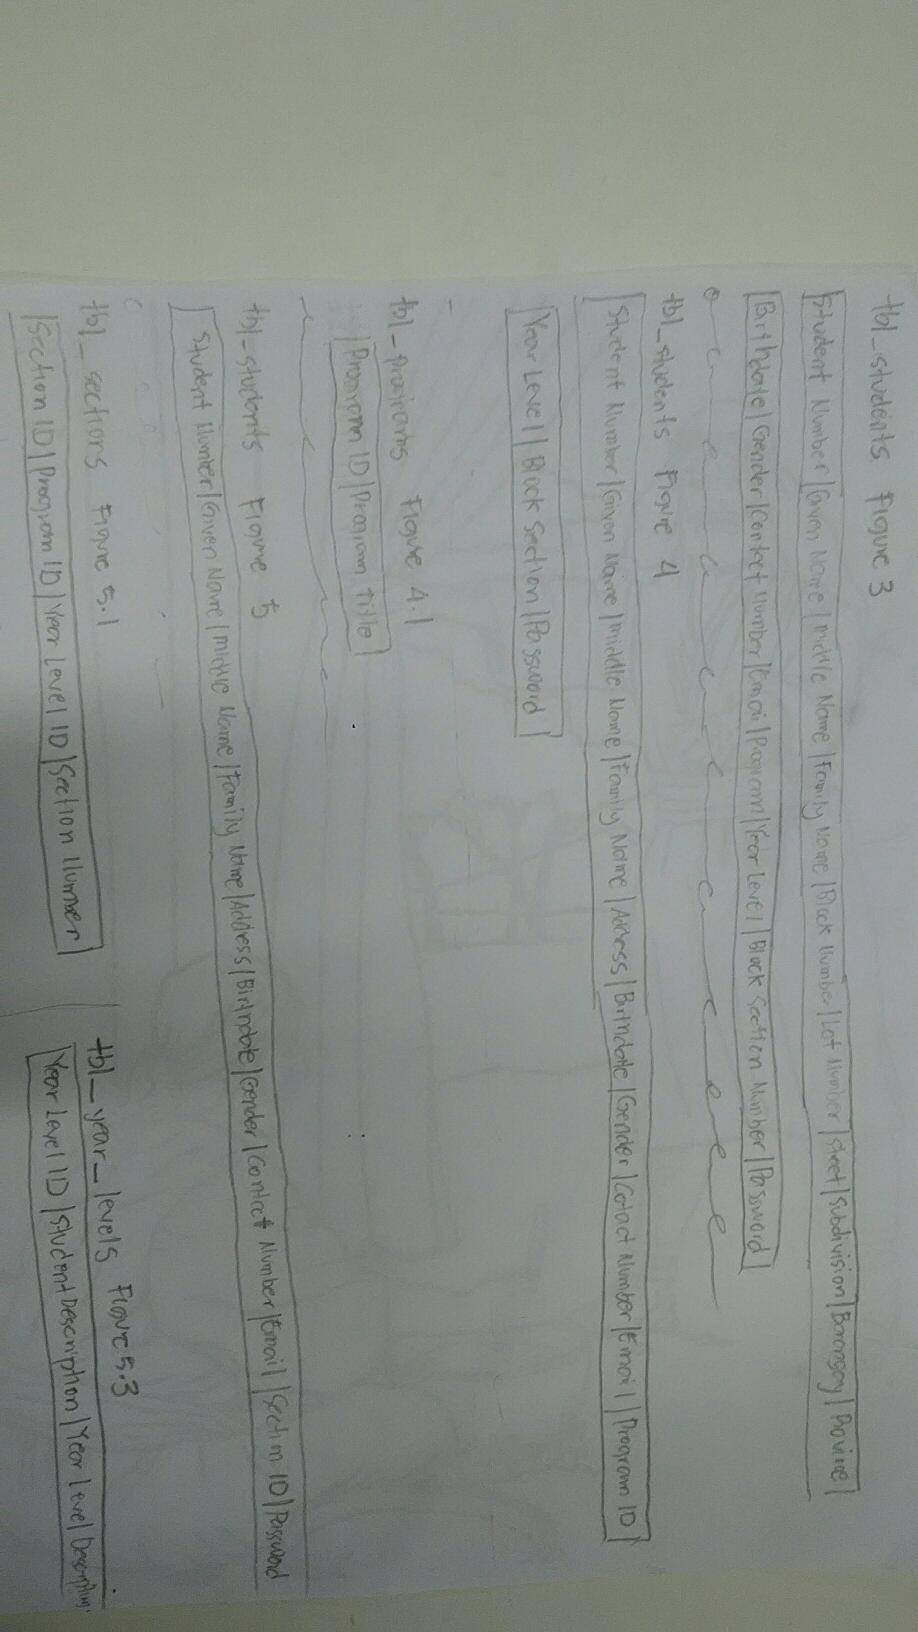 tbl_students Figure 3
Student Number | Given Name | Middle Name | Family Name | Block Number | Lot Number | Street | Subdivision | Barangay | Province |
| Birthdate | Gender | Contact Number | Email | Program | Year Level | Block Section Number | Password |
tbl_students Figure 4
Student Number | Given Name | Middle Name | Family Name | Address | Birthdate | Gender | Cotact Number | Email | Program ID
| Year Level | Block Section | Password |
tbl_programs Figure 4.1
| Program ID | Program Title |
tbl_students Figure 5
Student Number | Given Name | Middle Name | Family Name | Address | Birthdate | Gender | Contact Number | Email | Section ID | Password
tbl_sections Figure 5.1
| Section ID | Program ID | Year Level ID | Section Number |
tbl_year_levels Figure 5.3
Year Level ID | Student Description | Year Level Description